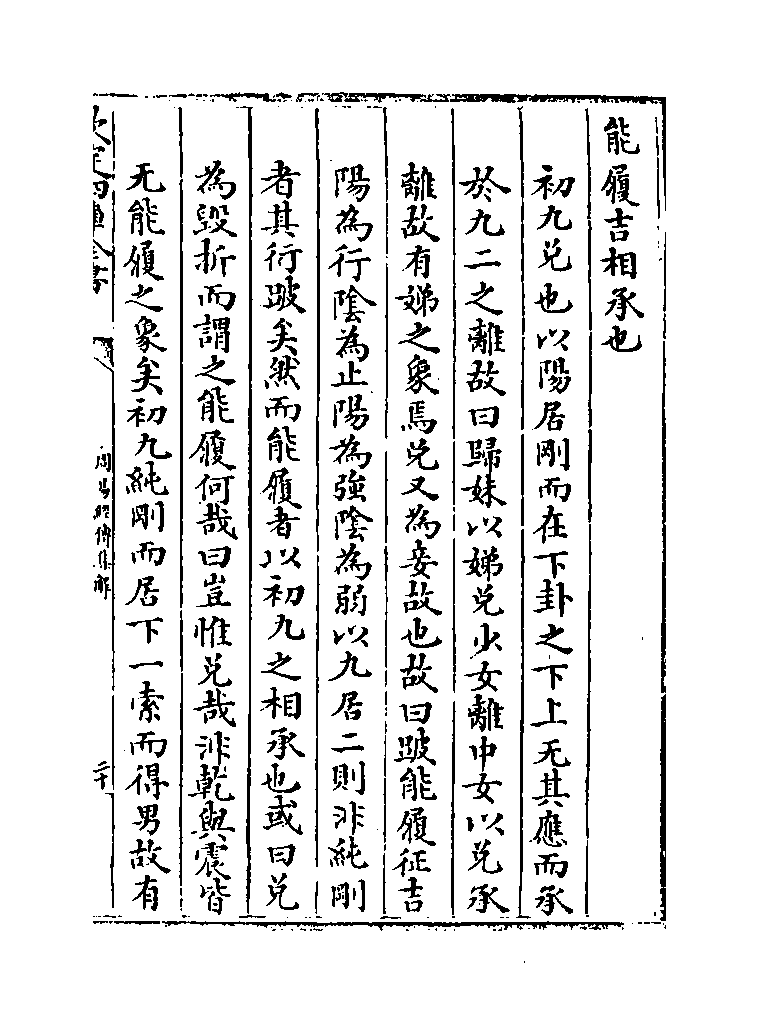 能履吉相承也
初九兑也以陽居剛而在下卦之下上无其應而承
於九二之離故曰歸妹以娣兑少女離中女以兑承
離故有娣之象焉兑又為妾故也故曰跛能履征吉
陽為行陰為止陽為強陰為弱以九居二則非純剛
者其行跛矣然而能履者以初九之相承也或曰兑
為毁折而謂之能履何哉曰豈惟兑哉非乾與震皆
无能履之象矣初九純剛而居下一索而得男故有
欽定四庫全書
周易經傳集解
二十